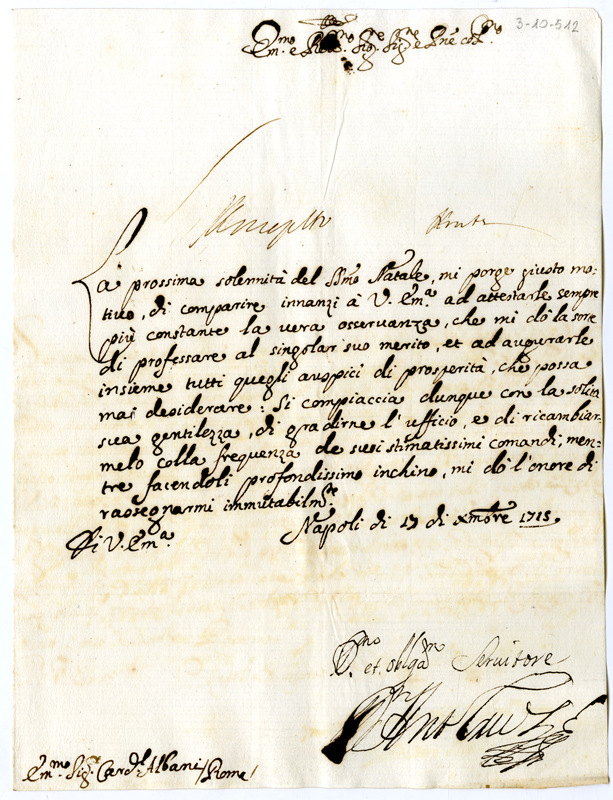 3-10-512
Em.mo e Rev.mo Sig.re Sig.re e Prne col.mo
La prossima solennità del SSmo Natale, mi porge giusto mo-
tivo, di comparire innanzi à V. Em.a ad attestarle sempre
più constante la vera osservanza, che mi dò la sorte
di professare al singolar suo merito, et ad augurarle
insieme tutti quegli auspici di prosperità, che possa
mai desiderare: Si compiaccia dunque con la solita
sua gentilezza, di gradirne l'ufficio, e di ricambiar-
melo colla frequenza de suoi stimatissimi comandi; men-
tre facendoli profondissimo inchino, mi dò l'onore di
rassegnarmi immutabilm.te
Di V. Em.a
Napoli di 17 di Xmbre 1715.
D.mo et oblig.mo Servitore
Em.mo Sig.r Card.l Albani / Roma /